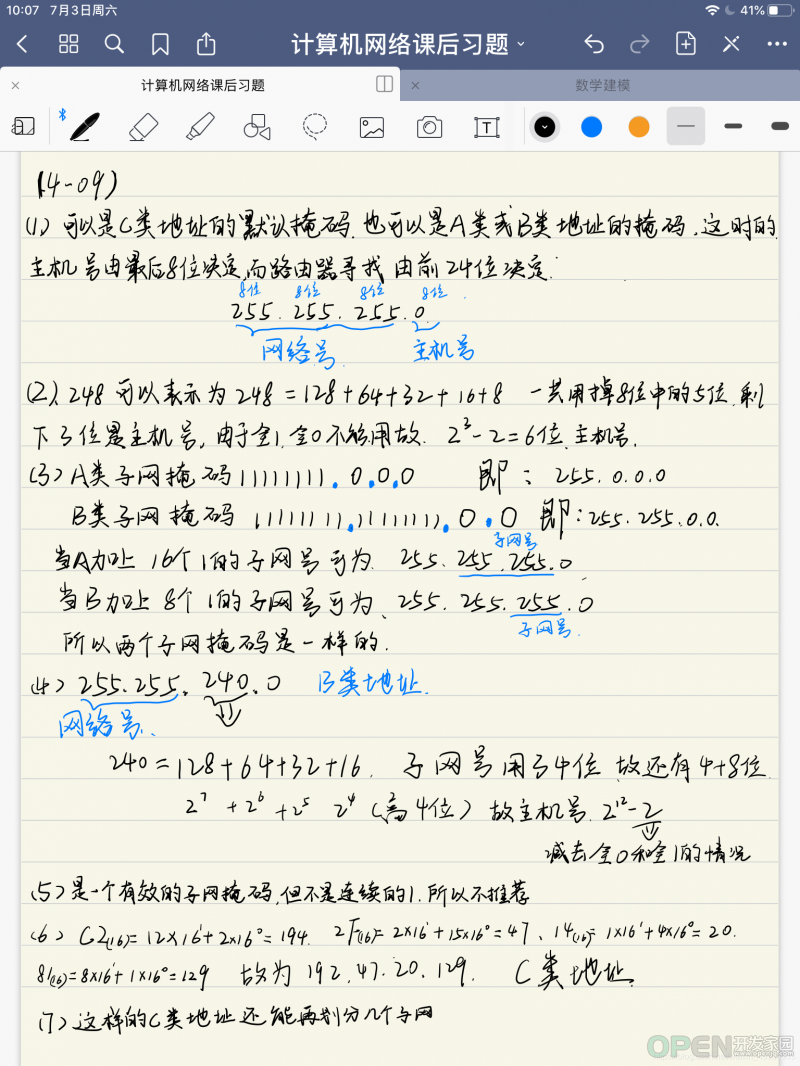 10:07 7月3日周六
41%
计算机网络课后习题
计算机网络课后习题
数学建模
T
(4-09)
(1) 可以是C类地址的默认掩码.也可以是A类或B类地址的掩码.这时的
主机号由最后8位决定,而路由器寻找由前24位决定.
8位 8位 8位 8位
255.255.255.0
网络号 主机号
(2)、248可以表示为248=128+64+32+16+8 一共用掉8位中的5位.剩
下3位是主机号,由于全1.全0不能用故.2³-2=6位.主机号.
(3) A类子网掩码11111111.0.0.0 即: 255.0.0.0
B类子网掩码 11111111.11111111.0.0 即:255.255.0.0.
子网号
当A加上16个1的子网号可为. 255.255.255.0
当B加上8个1的子网号可为、255.255.255.0
子网号.
所以两个子网掩码是一样的.
(4) 255.255.240.0 B类地址.
网络号、
240=128+64+32+16. 子网号用了4位.故还有4+8位.
2⁷+2⁶+2⁵ 2⁴(高4位) 故主机号.2¹²-2
减去全0和全1的情况
(5) 是一个有效的子网掩码,但不是连续的1.所以不推荐
(6) C2(16)=12×16¹+2×16⁰=194. 2F(16)=2×16¹+15×16⁰=47、14(16)=1×16¹+4×16⁰=20.
81(16)=8×16¹+1×16⁰=129 故为 192.47.20.129. C类地址.
(7) 这样的C类地址还能再划分几个子网
OPEN开发家园